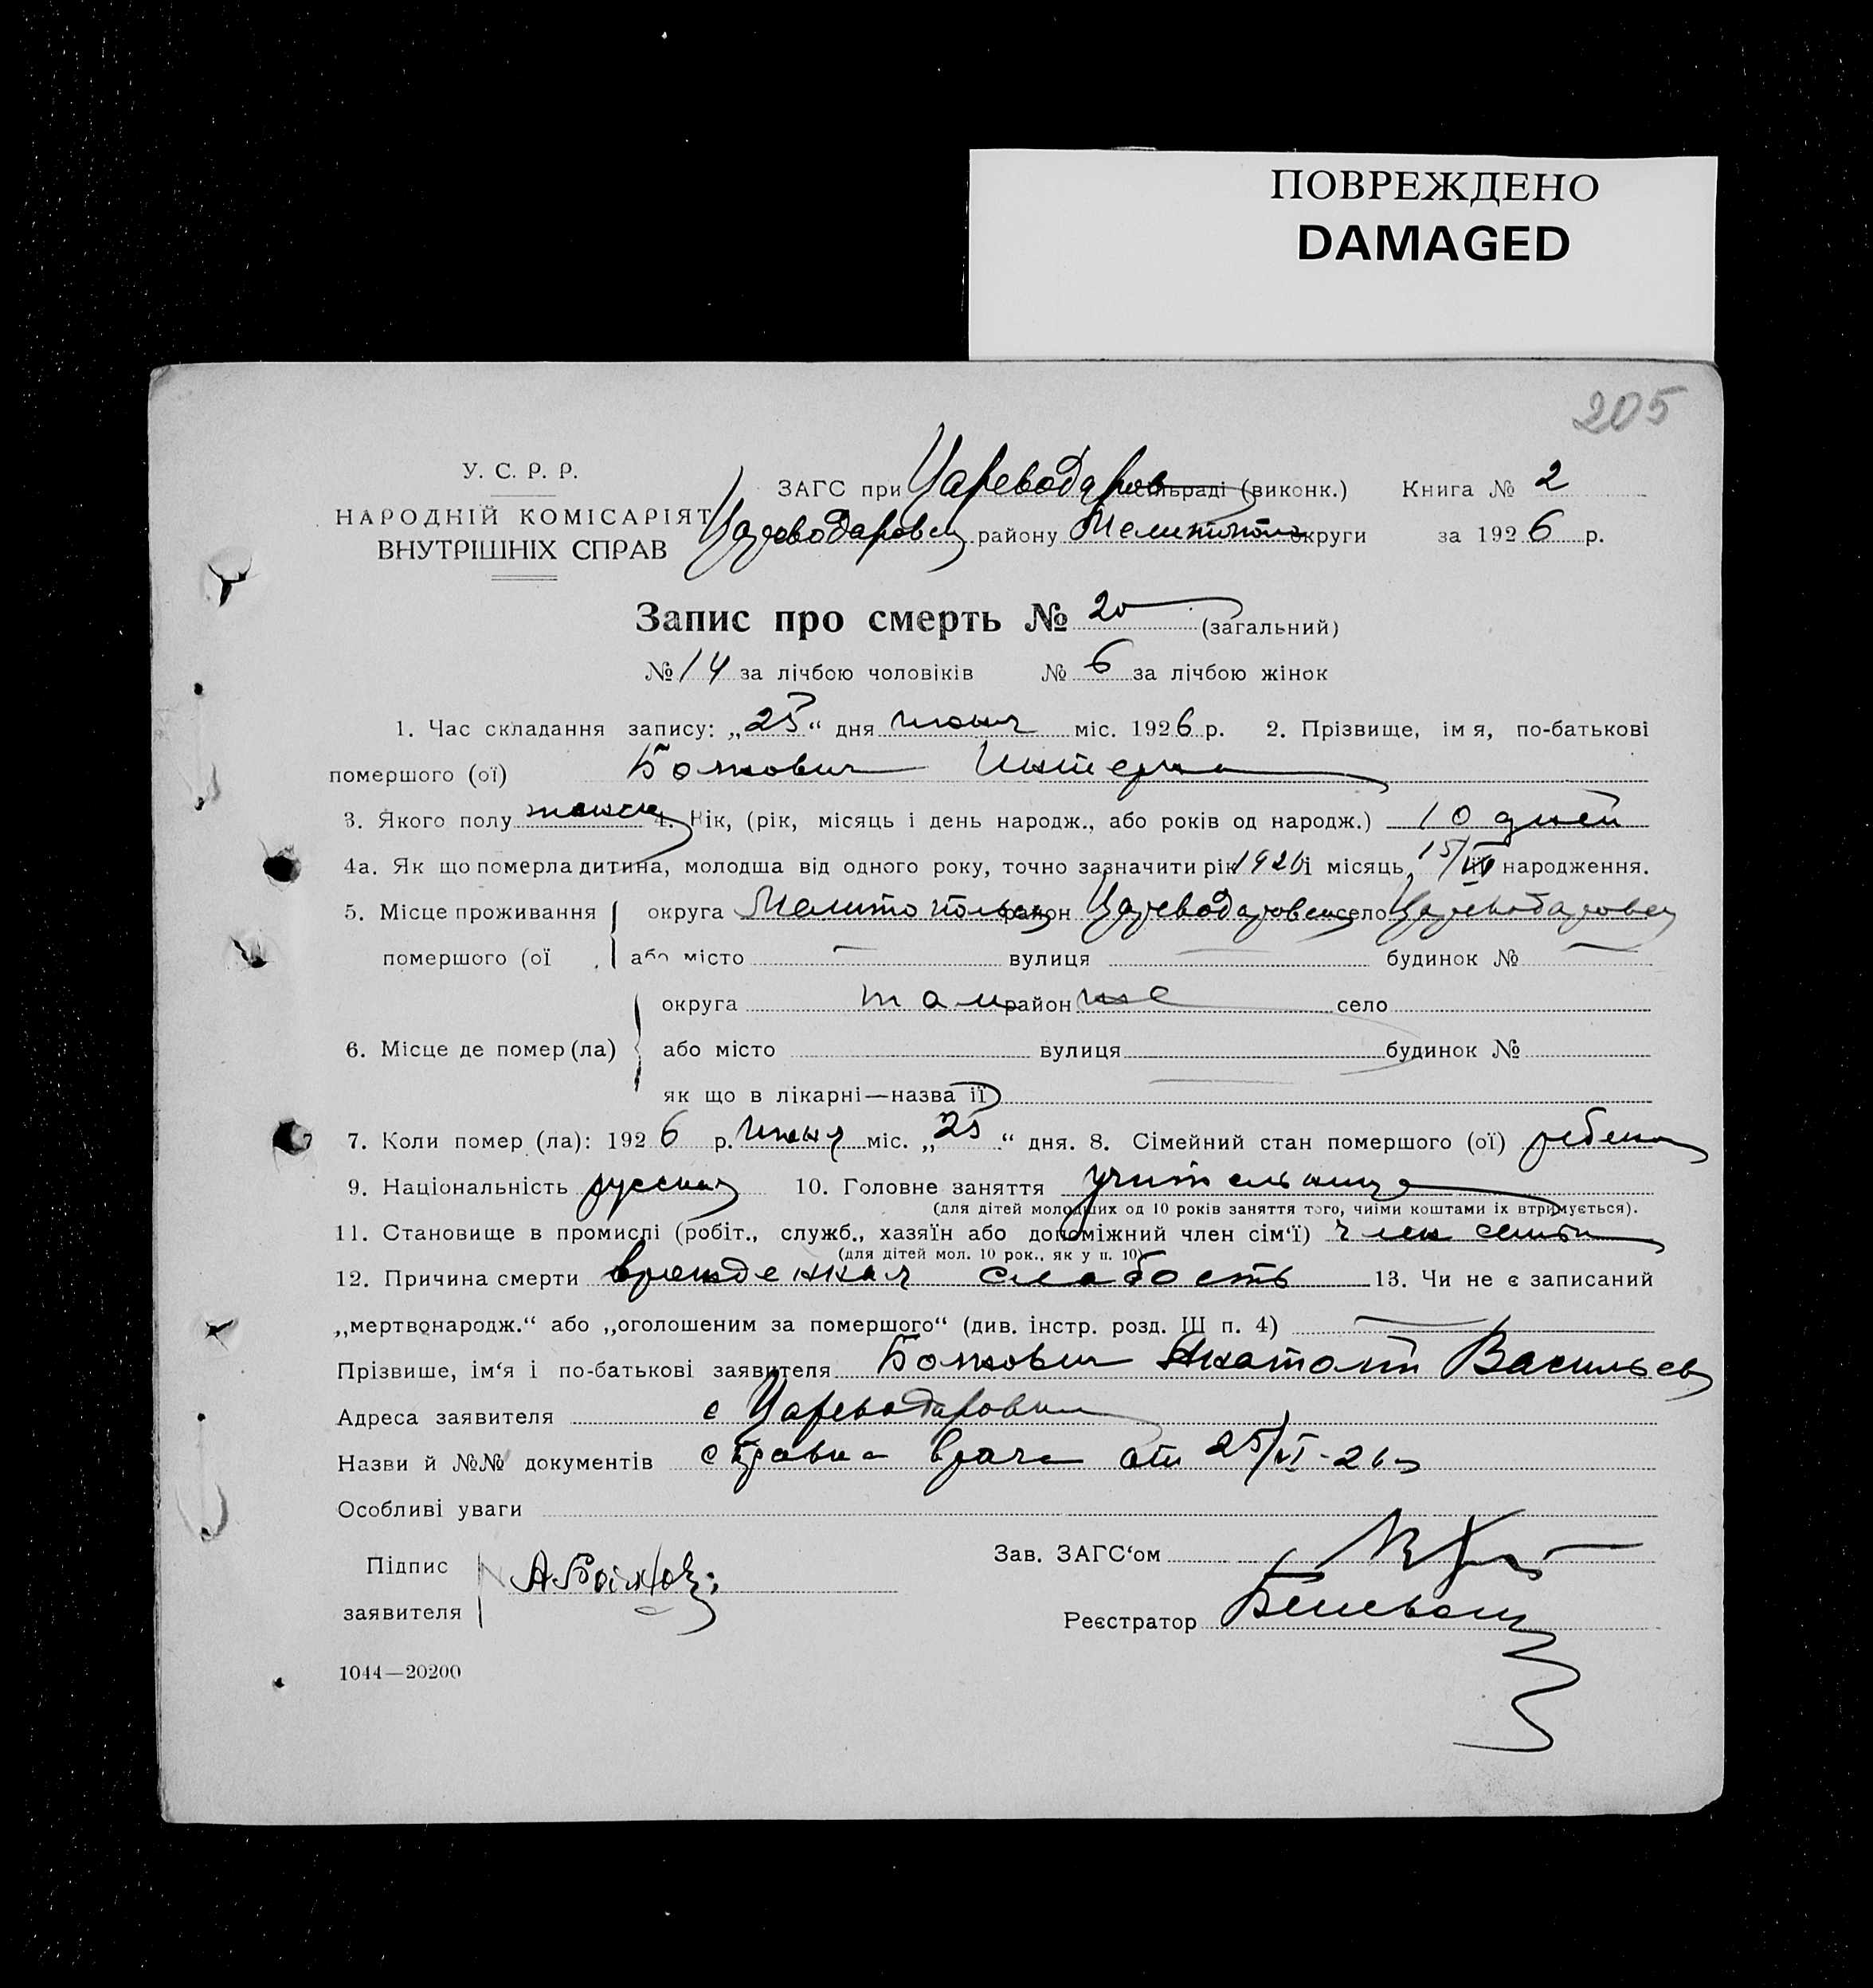 ПОВРЕЖДЕНО
DAMAGED
205
У. С. Р. Р.
НАРОДНІЙ КОМІСАРІЯТ
ВНУТРІШНІХ СПРАВ
ЗАГС при Цареводаров сільраді (виконк.) Книга № 2
Цареводаровск району Мелитопол округи за 1926 р.
Запис про смерть № 20 (загальний)
№ 14 за лічбою чоловіків № 6 за лічбою жінок
1. Час складання запису: „25“ дня июня міс. 1926 р. 2. Прізвище, імя, по-батькові
помершого (ої) Божкович
3. Якого полу женск 4. Вік, (рік, місяць і день народж., або років од народж.) 10 дней
4а. Як що померла дитина, молодша від одного року, точно зазначити рік 1926 і місяць 15/VI народження.
5. Місце проживання помершого (ої округа Мелитопольск район Цареводаровск село Цареводаровк
або місто — вулиця — будинок № —
6. Місце де помер (ла) округа там район же село
або місто вулиця будинок №
як що в лікарні—назва її
7. Коли помер (ла): 1926 р. июня міс. „25“ дня. 8. Сімейний стан помершого (ої) ребенок
9. Національність русская 10. Головне заняття учительница
(для дітей молодших од 10 років заняття того, чиїми коштами їх втримується).
11. Становище в промислі (робіт., служб., хазяїн або допоміжний член сім'ї) член семьи
(для дітей мол. 10 рок., як у п. 10)
12. Причина смерти врожденная слабость 13. Чи не є записаний
„мертвонародж.“ або „оголошеним за помершого“ (див. інстр. розд. Ш п. 4) —
Прізвише, ім'я і по-батькові заявителя Божкович Анатолий Васильев
Адреса заявителя с Цареводаровка
Назви й №№ документів справка врача от 25/VI-26 г
Особливі уваги
Підпис
заявителя
Зав. ЗАГС'ом
Реєстратор
1044—20200